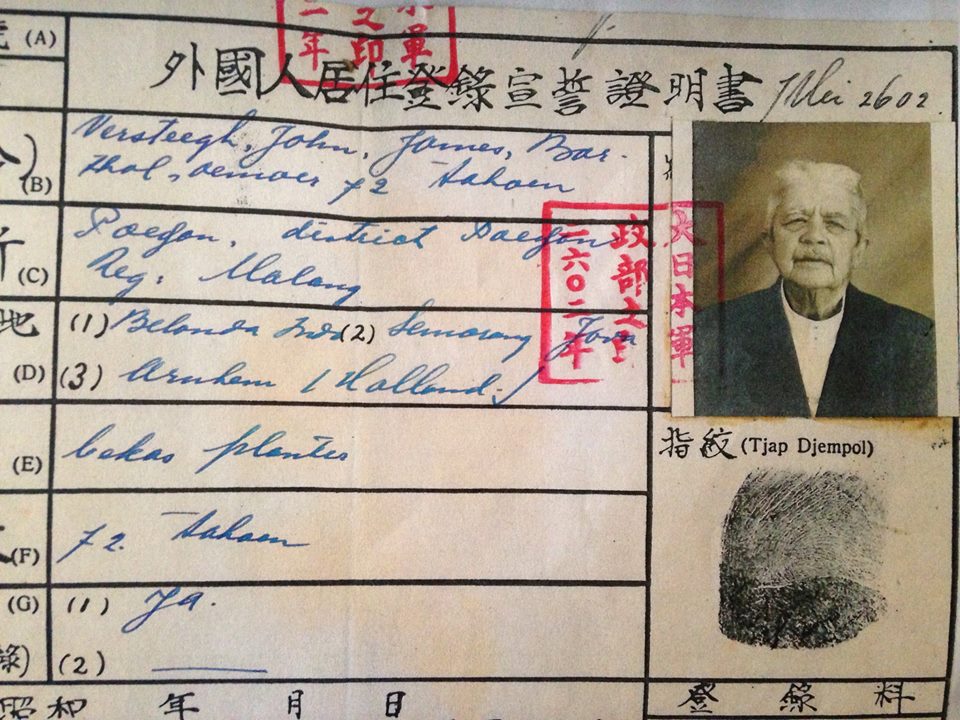 (A)
外國人居住登錄宣誓證明書
Mei 2602
軍
之印
二年
(B)
Versteegh, John, James, Bar-
thol, oemoer 72 tahoen
(C)
Poedjon, district Poedjon
Reg: Malang
地
(D)
(1) Belanda Indo (2) Semarang Java
(3) Arnhem (Holland.)
大日本軍
政部之印
二六〇二年
(E)
bekas planter
指紋 (Tjap Djempol)
(F)
72. tahoen
(G)
(1) Ja.
錄)
(2)
昭和 年 月 日
登錄料